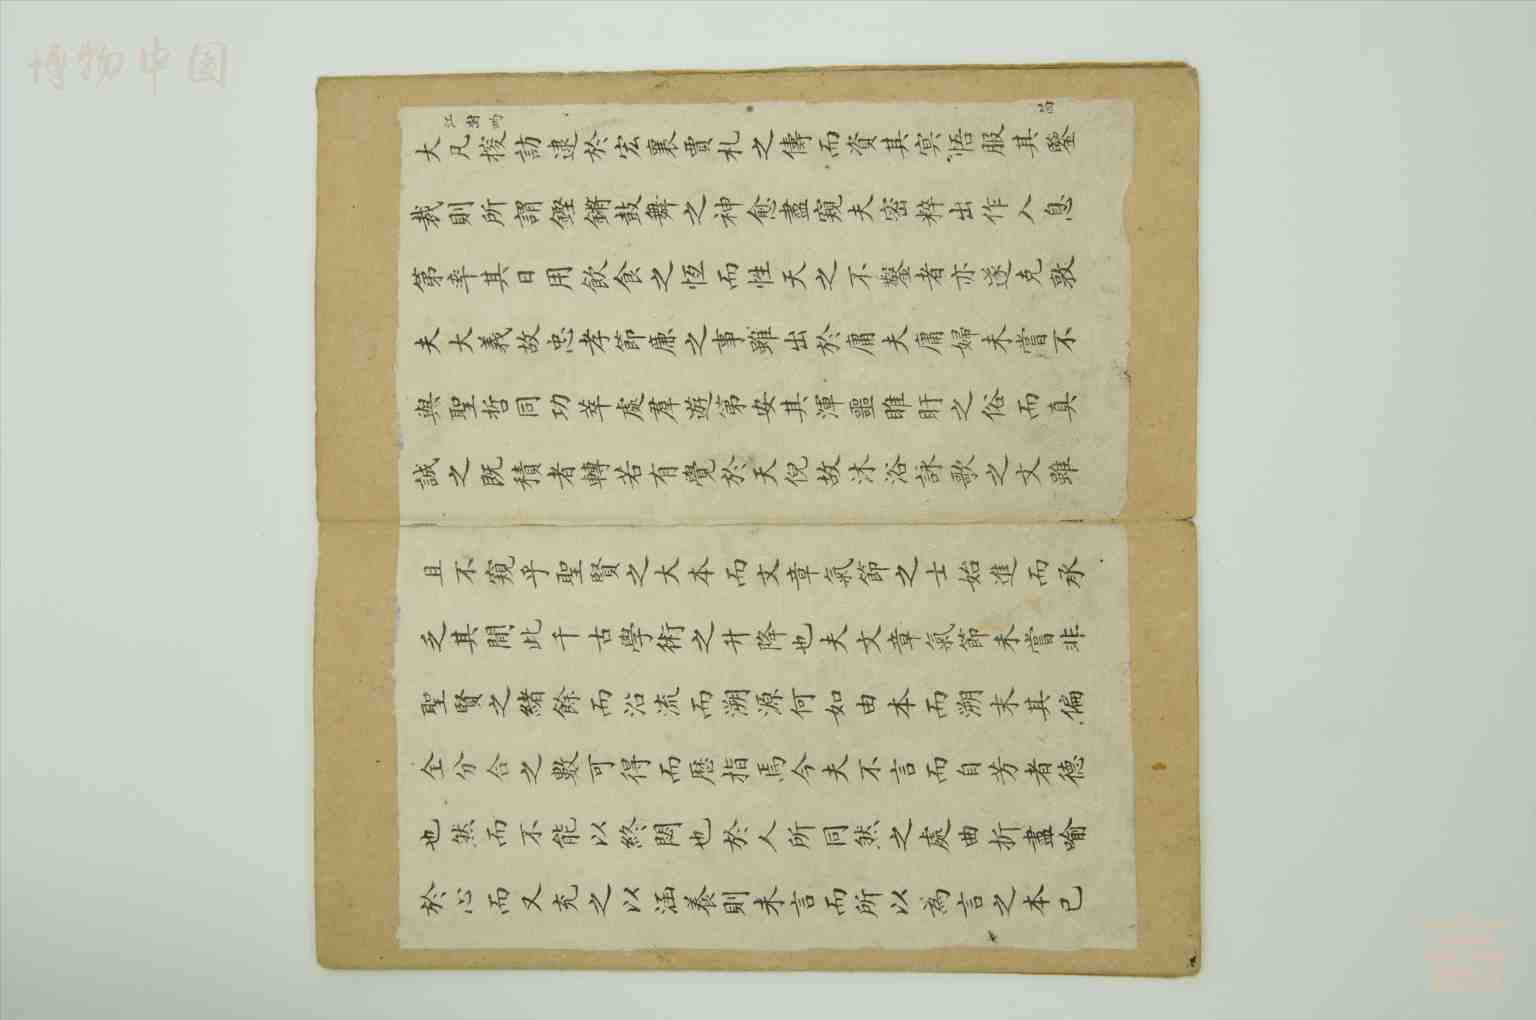 大凡搜訪逮於宏襄賈札之儔而資其冥悟服其鑒
裁則所謂鏗鏘鼓舞之神愈盡窺夫密粹出作入息
第率其日用飲食之恆而性天之不鑿者亦遂克敦
夫大義故忠孝節廉之事雖出於庸夫庸婦未嘗不
與聖哲同功萃處羣遊第安其渾噩睢盱之俗而真
誠之既積者轉若有覺於天倪故沐浴詠歌之文雖
且不窺乎聖賢之大本而文章氣節之士始進而承
乏其間此千古學術之升降也夫文章氣節未嘗非
聖賢之緒餘而沿流而溯源何如由本而溯末其偏
全分合之數可得而歷指焉今夫不言而自芳者德
也然而不能以終閟也於人所同然之處曲折盡喻
於心而又充之以涵養則未言而所以為言之本已
博物中国